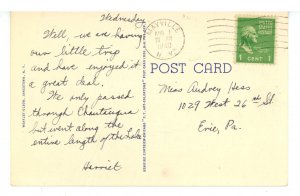 Wednesday
Well, we are having
our little trip
and have enjoyed it
a great deal.
We only passed
through Chautauqua
but went along the
entire length of the Lake.
Harriet
MAYVILLE
N. Y.
1 CENT 1
POST CARD
Miss Audrey Hess
1029 West 26th St
Erie, Pa.